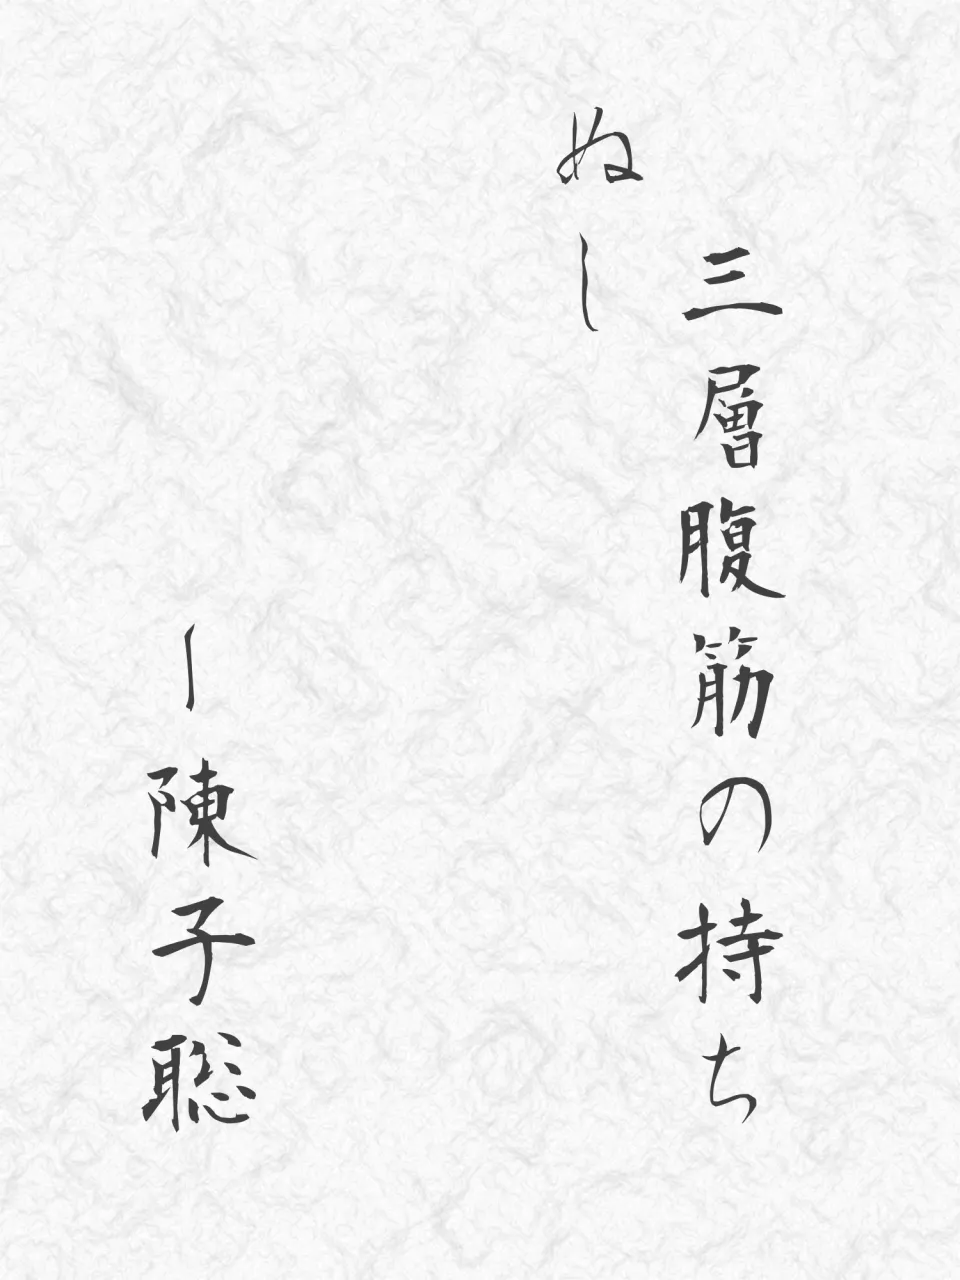 三層腹筋の持ち
ぬし
ー陳子聡